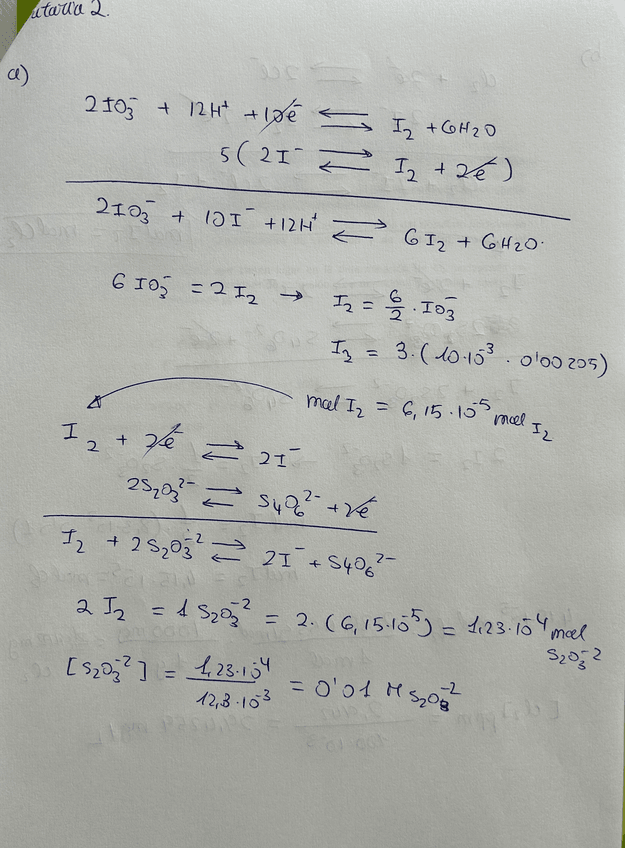 utaria 2.
a)
2 IO₃⁻ + 12H⁺ + 10e⁻ ⇆ I₂ + 6H₂O
5 ( 2I⁻ ⇄ I₂ + 2e⁻ )
2IO₃⁻ + 10I⁻ + 12H⁺ ⇄ 6I₂ + 6H₂O.
6 IO₃⁻ = 2 I₂ → I₂ = 6/2 · IO₃⁻
I₂ = 3·(10·10⁻³ · 0'00205)
mol I₂ = 6,15·10⁻⁵ mol I₂
I₂ + 2e⁻ ⇄ 2I⁻
2S₂O₃²⁻ ⇄ S₄O₆²⁻ + 2e⁻
I₂ + 2S₂O₃⁻² ⇄ 2I⁻ + S₄O₆²⁻
2 I₂ = 1 S₂O₃⁻² = 2·(6,15·10⁻⁵) = 1,23·10⁻⁴ mol
S₂O₃⁻²
[S₂O₃⁻²] = 1,23·10⁻⁴ / 12,3·10⁻³ = 0'01 M S₂O₃⁻²